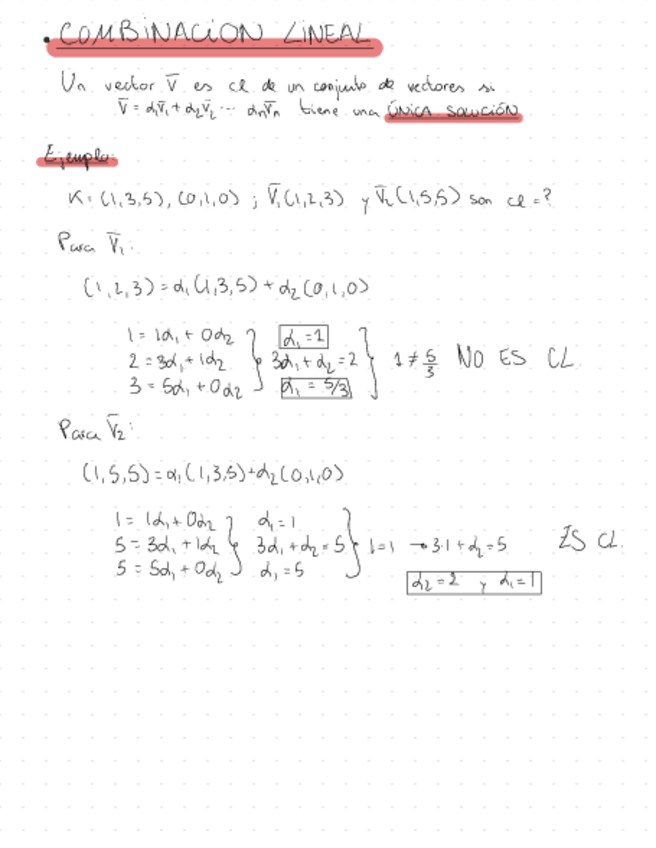 • COMBINACION LINEAL
Un vector V̄ es cl de un conjunto de vectores si
V̄ = α₁V̄₁ + α₂V̄₂ ... αnV̄n tiene una ÚNICA SOLUCIÓN
Ejemplo:
K = (1,3,5), (0,1,0) ; V̄₁(1,2,3) y V̄₂(1,5,5) son cl = ?
Para V̄₁:
(1,2,3) = α₁(1,3,5) + α₂(0,1,0)
1 = 1α₁ + 0α₂ } α₁ = 1
2 = 3α₁ + 1α₂ } 3α₁ + α₂ = 2 } 1 ≠ 5/3 NO ES CL
3 = 5α₁ + 0α₂ } α₁ = 5/3
Para V̄₂:
(1,5,5) = α₁(1,3,5) + α₂(0,1,0)
1 = 1α₁ + 0α₂ } α₁ = 1
5 = 3α₁ + 1α₂ } 3α₁ + α₂ = 5 } 1 = 1 → 3·1 + α₂ = 5 ES CL
5 = 5α₁ + 0α₂ } α₁ = 5
α₂ = 2 y α₁ = 1